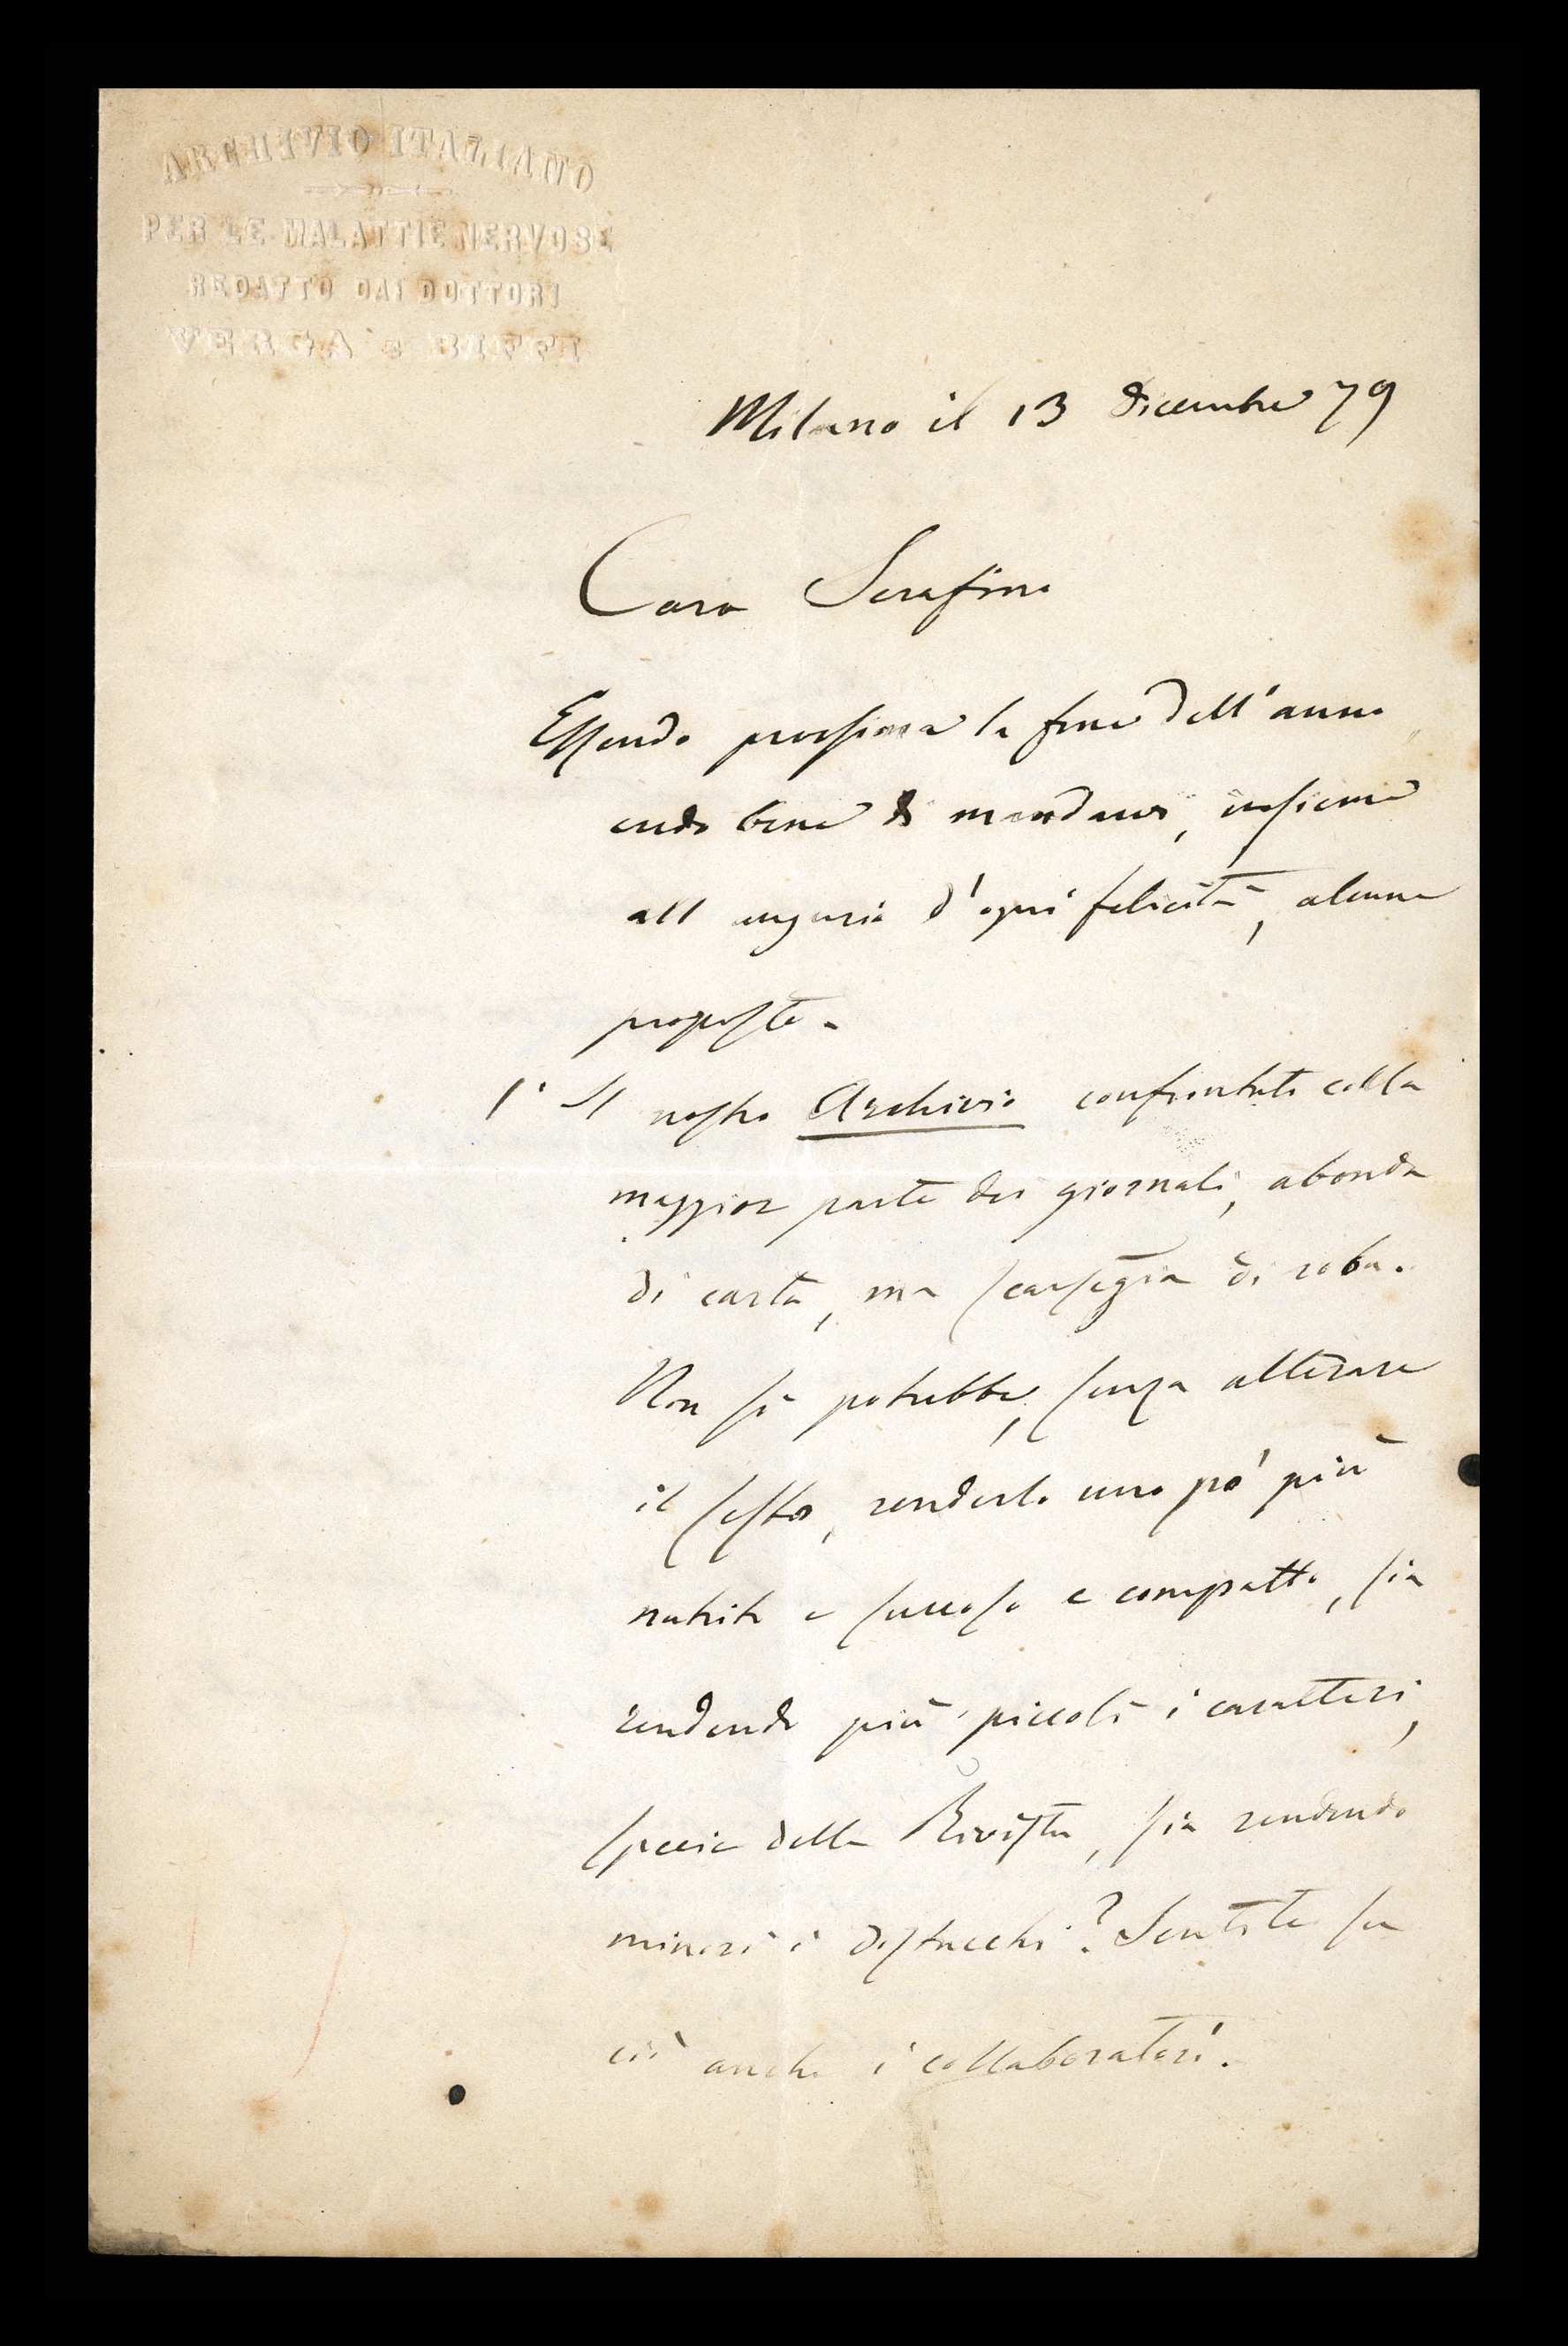 ARCHIVIO ITALIANO
PER LE MALATTIE NERVOSE
REDATTO DAI DOTTORI
VERGA e BIFFI
Milano il 13 dicembre 79
Caro Serafino
Essendo prossima la fine dell'anno
credo bene di mandarvi, insieme
all augurio d'ogni felicità, alcune
proposte.
1° Il nostro Archivio confrontato colla
maggior parte dei giornali, abonda
di carta, ma scarseggia di roba.
Non si potrebbe, senza alterare
il sesto, renderlo uno po' più
nutrito e succoso e compatto, sia
rendendo più piccoli i caratteri,
specie della Rivista, sia rendendo
minori i distacchi? Sentite su
ciò anche i collaboratori.